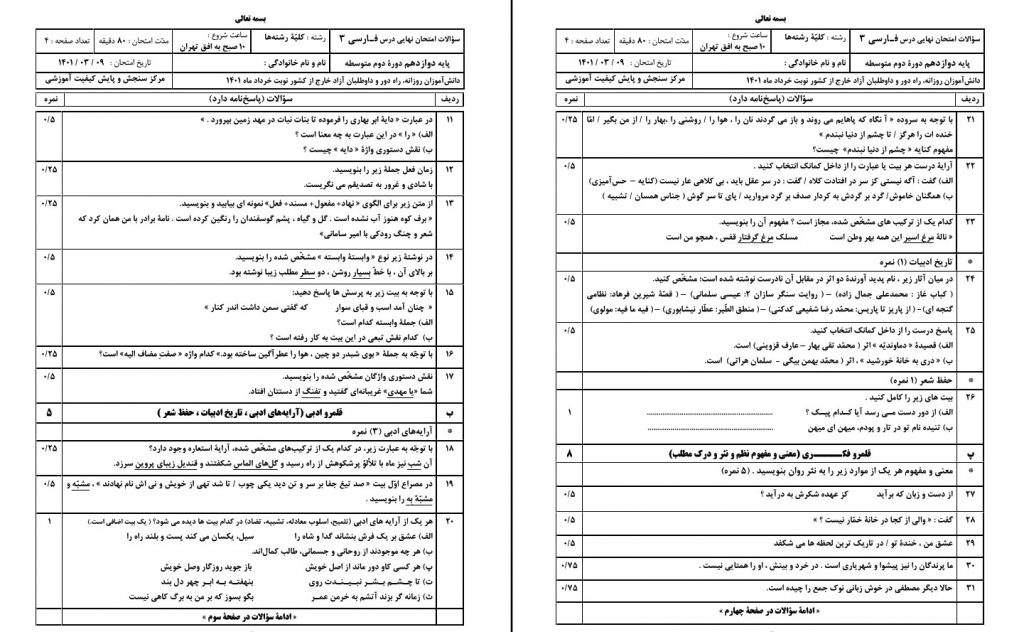 بسمه تعالی
سؤالات امتحان نهایی درس فـارسی ۳
رشته : کلیّهٔ رشته‌ها
ساعت شروع :
۱۰ صبح به افق تهران
مدّت امتحان : ۸۰ دقیقه
تعداد صفحه : ۴
پایه دوازدهم دورهٔ دوم متوسطه
نام و نام خانوادگی :
تاریخ امتحان : ۰۹ / ۰۳ / ۱۴۰۱
دانش‌آموزان روزانه، راه دور و داوطلبان آزاد خارج از کشور نوبت خرداد ماه ۱۴۰۱
مرکز سنجش و پایش کیفیت آموزشی
ردیف سؤالات (پاسخ‌نامه دارد) نمره
۱۱ در عبارت « دایهٔ ابر بهاری را فرموده تا بنات نبات در مهد زمین بپرورد . » ۰/۵
الف) « را » در این عبارت به چه معنا است ؟
ب) نقش دستوری واژهٔ « دایه » چیست ؟
۱۲ زمان فعل جملهٔ زیر را بنویسید. ۰/۲۵
با شادی و غرور به تصدیقم می نگریست.
۱۳ از متن زیر برای الگوی « نهاد+ مفعول+ مسند+ فعل» نمونه ای بیابید و بنویسید. ۰/۲۵
« برف کوه هنوز آب نشده است . گل و گیاه ، پشم گوسفندان را رنگین کرده است . نامهٔ برادر با من همان کرد که
شعر و چنگ رودکی با امیر سامانی»
۱۴ در نوشتهٔ زیر نوع « وابستهٔ وابسته » مشخّص شده را بنویسید. ۰/۵
بر بالای آن ، با خطّ بسیار روشن ، دو سطر مطلب زیبا نوشته بود.
۱۵ با توجه به بیت زیر به پرسش ها پاسخ دهید: ۰/۵
« چنان آمد اسب و قبای سوار که گفتی سمن داشت اندر کنار »
الف) جملهٔ وابسته کدام است؟
ب) کدام نقش تبعی در این بیت به کار رفته است ؟
۱۶ با توجّه به جملهٔ « بوی شبدر دو چین ، هوا را عطرآگین ساخته بود.» کدام واژه « صفتِ مضاف الیه» است؟ ۰/۲۵
۱۷ نقش دستوری واژگان مشخّص شده را بنویسید. ۰/۵
شما «یا مهدی» غریبانه‌ای گفتید و تفنگ از دستتان افتاد.
ب قلمرو ادبی (آرایه‌های ادبی ، تاریخ ادبیات ، حفظ شعر ) ۵
* آرایه‌های ادبی (۳) نمره
۱۸ با توجّه به عبارت زیر، در کدام یک از ترکیب‌های مشخّص شده، آرایهٔ استعاره وجود دارد؟ ۰/۲۵
آن شب نیز ماه با تلألؤ پرشکوهش از راه رسید و گل‌های الماس شکفتند و قندیل زیبای پروین سرزد.
۱۹ در مصراع اوّل بیت « صد تیغ جفا بر سر و تن دید یکی چوب / تا شد تهی از خویش و نی اش نام نهادند » ، مشبّه و ۰/۵
مشبّهٌ به را بنویسید .
۲۰ هر یک از آرایه های ادبی (تلمیح، اسلوب معادله، تشبیه، تضاد) در کدام بیت ها دیده می شود؟ ( یک بیت اضافی است.) ۱
الف) عشق بر یک فرش بنشاند گدا و شاه را سیل، یکسان می کند پست و بلند راه را
ب) هر چه موجودند از روحانی و جسمانی، طالب کمال‌اند.
پ) هر کسی کاو دور ماند از اصل خویش باز جوید روزگار وصل خویش
ت) تا چـشـم بـشـر نبـیـنـدت روی بنهفتـه بـه ابـر چهر دل بند
ث) زمانه گر بزند آتشم به خرمن عمـر بگو بسوز که بر من به برگ کاهی نیست
« ادامهٔ سؤالات در صفحهٔ سوم »
بسمه تعالی
سؤالات امتحان نهایی درس فـارسی ۳
رشته : کلیّهٔ رشته‌ها
ساعت شروع :
۱۰ صبح به افق تهران
مدّت امتحان : ۸۰ دقیقه
تعداد صفحه : ۴
پایه دوازدهم دورهٔ دوم متوسطه
نام و نام خانوادگی :
تاریخ امتحان : ۰۹ / ۰۳ / ۱۴۰۱
دانش‌آموزان روزانه، راه دور و داوطلبان آزاد خارج از کشور نوبت خرداد ماه ۱۴۰۱
مرکز سنجش و پایش کیفیت آموزشی
ردیف سؤالات (پاسخ‌نامه دارد) نمره
۲۱ با توجه به سروده « آ نگاه که پاهایم می روند و باز می گردند نان را ، هوا را / روشنی را ،بهار را / از من بگیر / امّا ۰/۲۵
خنده ات را هرگز / تا چشم از دنیا نبندم »
مفهوم کنایه « چشم از دنیا نبندم» چیست؟
۲۲ آرایهٔ درست هر بیت یا عبارت را از داخل کمانک انتخاب کنید . ۰/۵
الف) گفت : آگه نیستی کز سر در افتادت کلاه / گفت : در سر عقل باید ، بی کلاهی عار نیست (کنایه – حس‌آمیزی)
ب) همگنان خاموش/ گرد بر گردش به کردار صدف بر گرد مروارید / پای تا سر گوش ( جناس همسان / تشبیه )
۲۳ کدام یک از ترکیب های مشخّص شده، مجاز است ؟ مفهوم آن را بنویسید. ۰/۵
« نالهٔ مرغ اسیر این همه بهر وطن است مسلک مرغ گرفتار قفس ، همچو من است
* تاریخ ادبیات (۱) نمره
۲۴ در میان آثار زیر ، نام پدید آورندهٔ دو اثر در مقابل آن نادرست نوشته شده است؛ مشخّص کنید. ۰/۵
( کباب غاز : محمدعلی جمال زاده) – ( روایت سنگر سازان ۲: عیسی سلمانی) – ( قصّهٔ شیرین فرهاد: نظامی
گنجه ای)– ( از پاریز تا پاریس: محمّد رضا شفیعی کدکنی) – (منطق الطّیر: عطّار نیشابوری) – (فیه ما فیه: مولوی)
۲۵ پاسخ درست را از داخل کمانک انتخاب کنید. ۰/۵
الف) قصیدهٔ « دماوندیّه » اثر ( محمّد تقی بهار – عارف قزوینی) است.
ب) « دری به خانهٔ خورشید » ، اثر ( محمّد بهمن بیگی - سلمان هراتی) است.
* حفظ شعر (۱ نمره)
۲۶ بیت های زیر را کامل کنید . ۱
الف) از دور دست مـی رسد آیا کـدام پیـک ؟ ..............................
ب) تنیده نام تو در تار و پودم، میهن ای میهن ..............................
پ قلمرو فکــــری (معنی و مفهوم نظم و نثر و درک مطلب) ۸
* معنی و مفهوم هر یک از موارد زیر را به نثر روان بنویسید . (۵ نمره)
۲۷ از دست و زبان که برآید کز عهده شکرش به درآید ؟ ۰/۵
۲۸ گفت : « والی از کجا در خانهٔ خمّار نیست ؟ » ۰/۵
۲۹ عشق من ، خندهٔ تو / در تاریک ترین لحظه ها می شکفد ۰/۵
۳۰ ما پرندگان را نیز پیشوا و شهریاری است . در خرد و بینش ، او را همتایی نیست . ۰/۷۵
۳۱ حالا دیگر مصطفی در خوش زبانی نوک جمع را چیده است. ۰/۷۵
« ادامهٔ سؤالات در صفحهٔ چهارم »